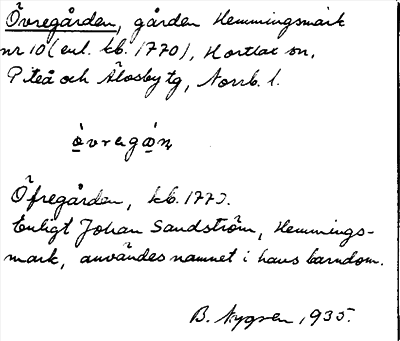 Övregården, gården Hemmingsmark
nr 10 (enl. kb. 1770), Hortlax sn,
Piteå och Älvsby tg, Norrb. l.
òvregọ́ṇ
Öfregården, kb. 1770.
Enligt Johan Sandström, Hemmings-
mark, användes namnet i hans barndom.
B. Nygren, 1935.